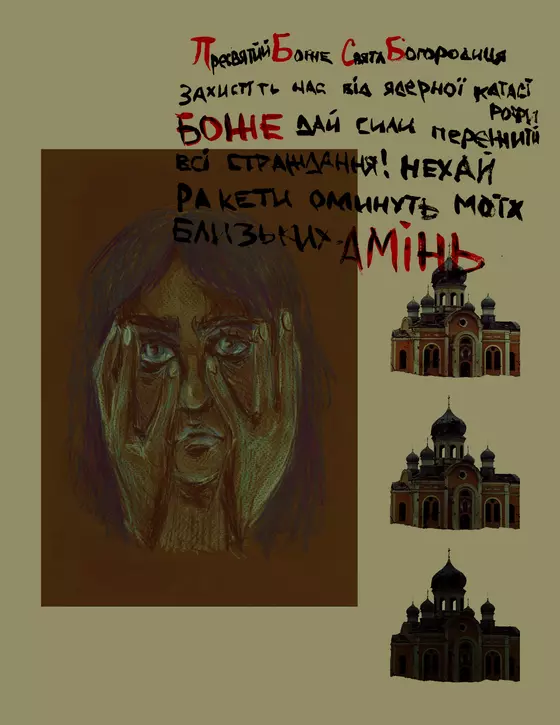 Пресвятий Боже Свята Богородиця
захистіть нас від ядерної катаст
рофи
БОЖЕ дай сили пережити
всі страждання! НЕХАЙ
РАКЕТИ ОМИНУТЬ МОЇХ
БЛИЗЬКИХ. АМІНЬ